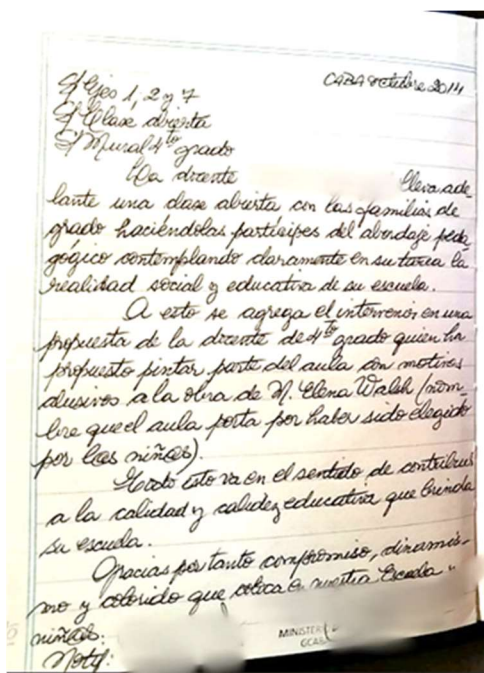 CABA octubre 2014
S/ Ejes 1, 2 y 7
S/ Clase abierta
S/ Mural 4to grado
La docente lleva ade_
lante una clase abierta con las familias de
grado haciéndolas partícipes del abordaje peda_
gógico contemplando claramente en su tarea la
realidad social y educativa de su escuela.
A esto se agrega el intervenir en una
propuesta de la docente de 4to grado quien ha
propuesto pintar parte del aula con motivos
alusivos a la obra de M. Elena Walsh (nom_
bre que el aula porta por haber sido elegido
por los niños).
Todo esto va en el sentido de contribuir
a la calidad y calidez educativa que brinda
su escuela.
Gracias por tanto compromiso, dinamis_
mo y colorido que coloca en nuestra Escuela
niños.
Notif:
MINISTER
GCAB